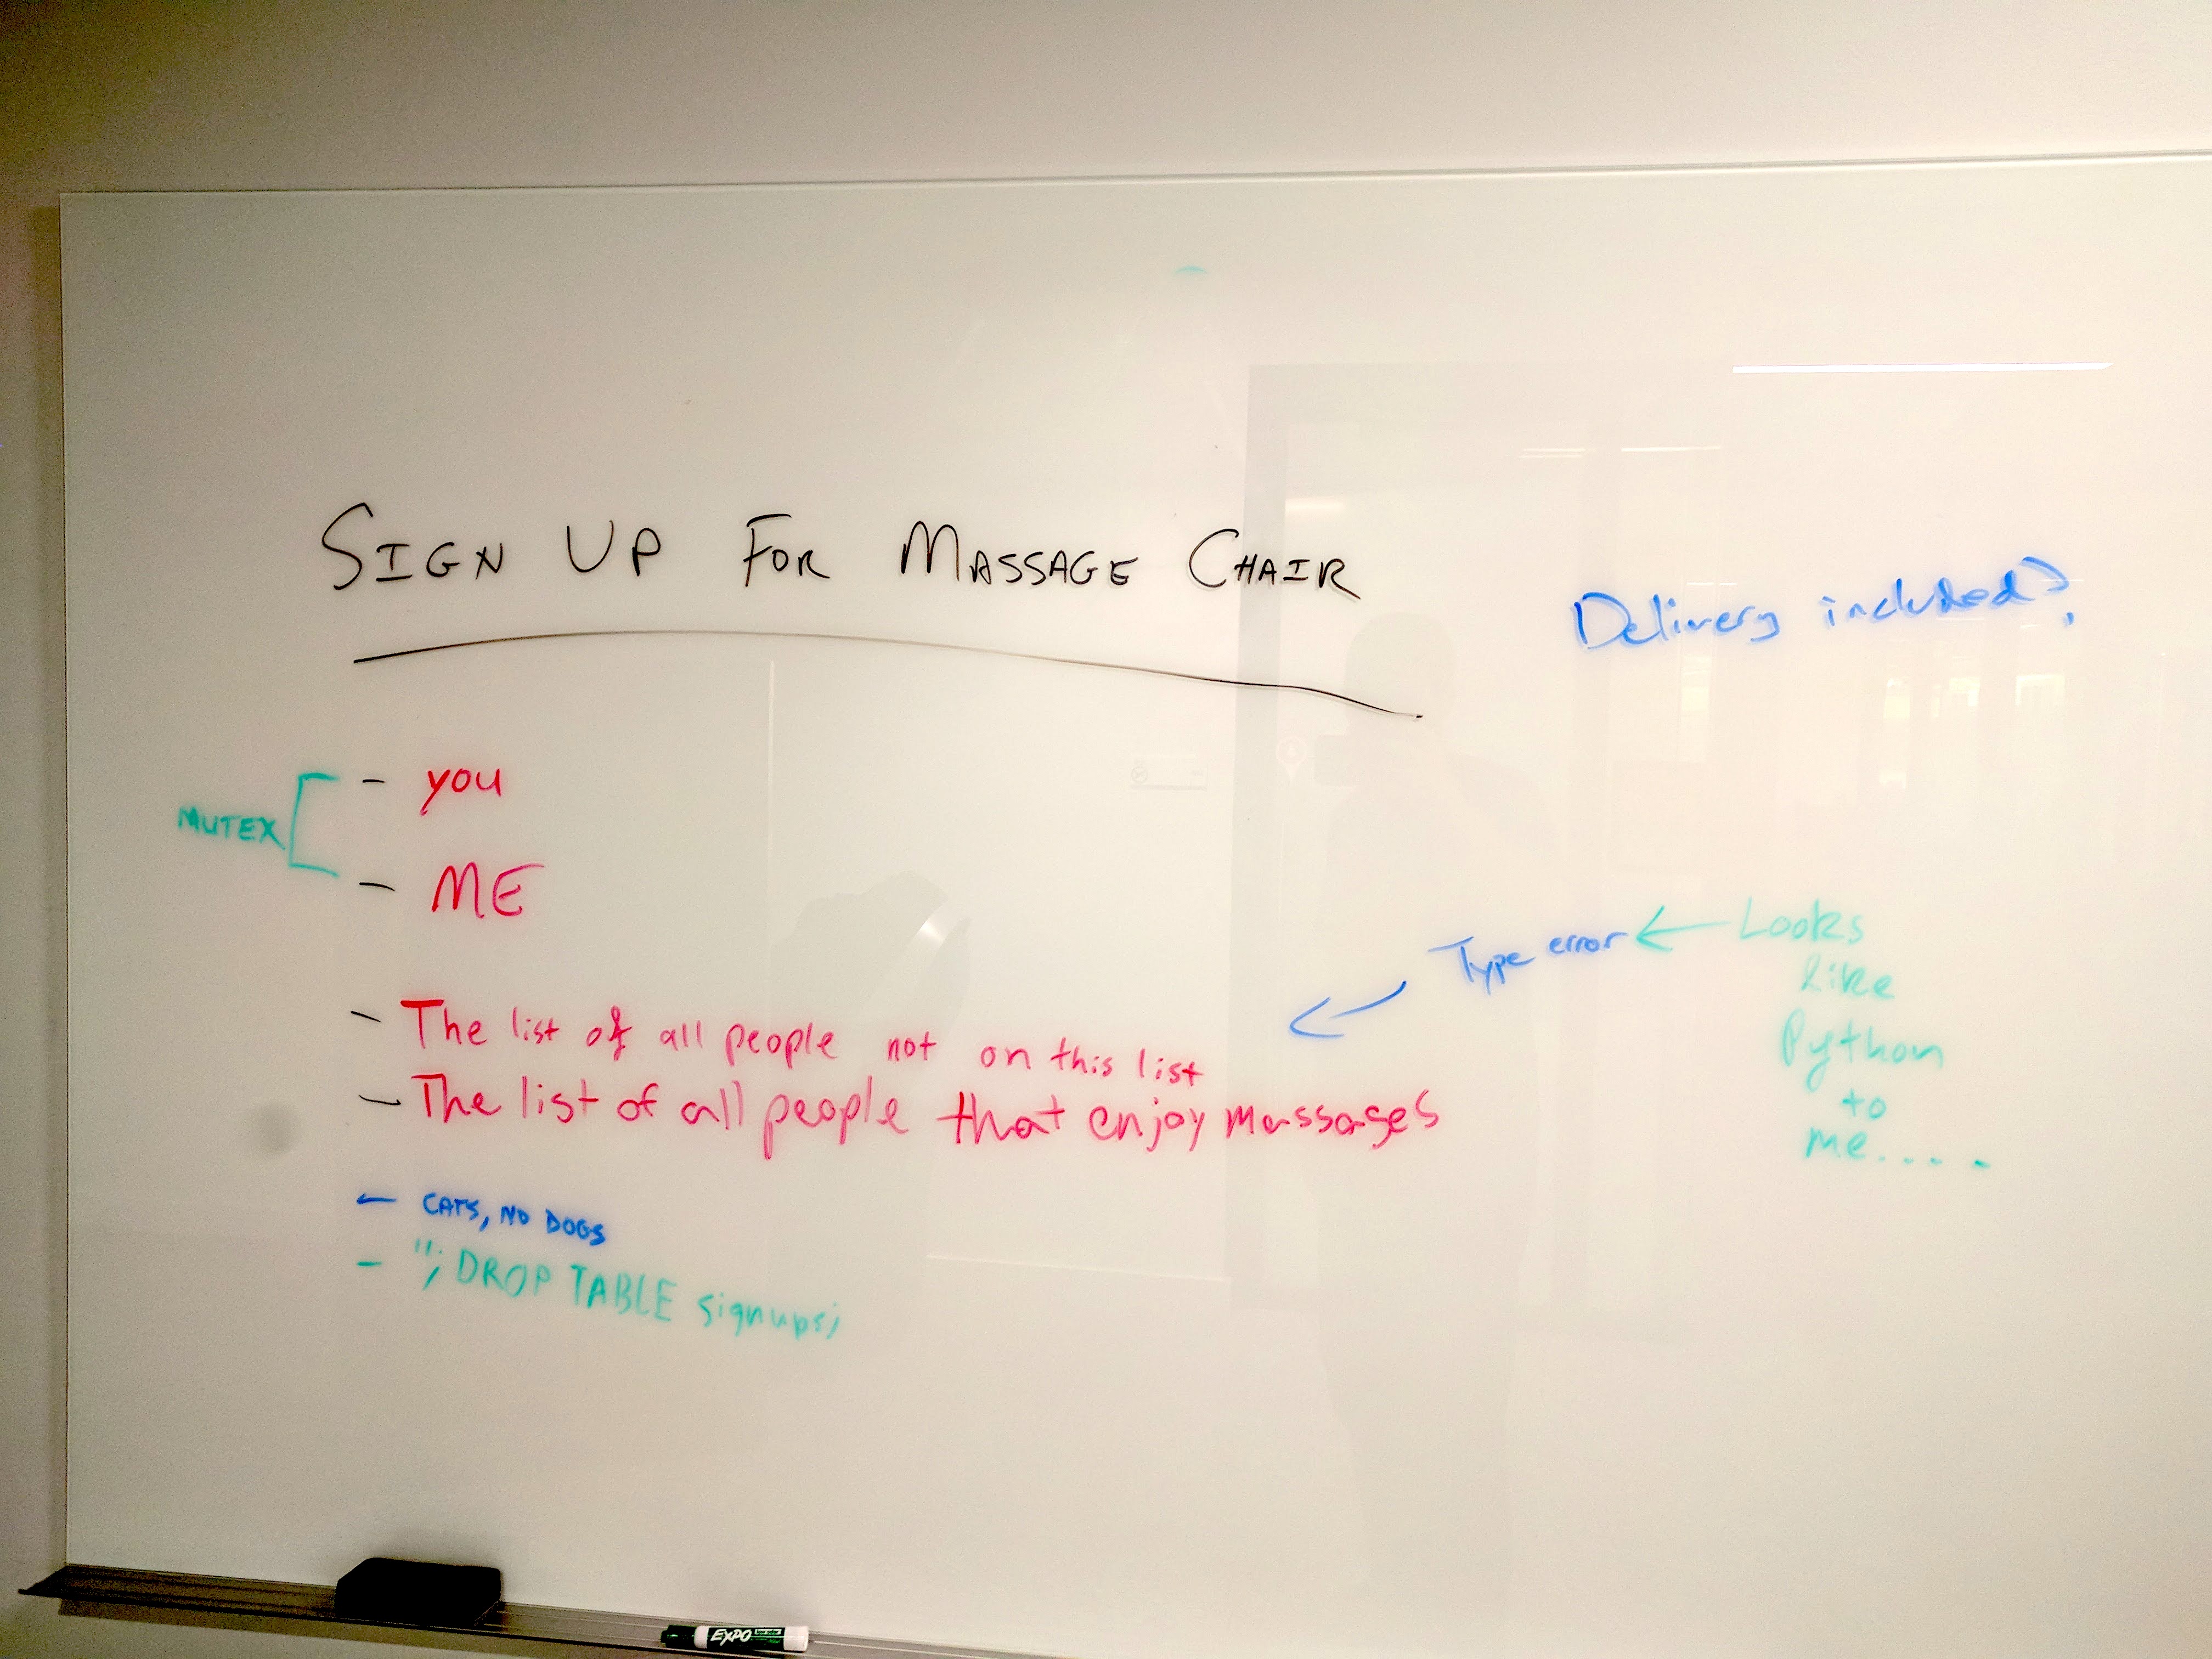 SIGN UP FOR MASSAGE CHAIR
Delivery included?
MUTEX
- you
- ME
- The list of all people not on this list
Type error
Looks
like
Python
to
me.....
- The list of all people that enjoy massages
- CATS, NO DOGS
- "; DROP TABLE signups;
EXPO